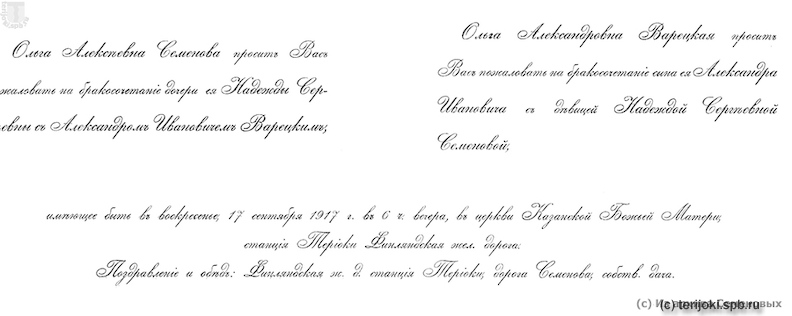 Ольга Алексѣевна Семенова проситъ Васъ
жаловать на бракосочетаніе дочери ея Надежды Сер-
евны съ Александромъ Ивановичемъ Варецкимъ,
Ольга Александровна Варецкая проситъ
Васъ пожаловать на бракосочетаніе сына ея Александра
Ивановича съ дѣвицей Надеждой Сергѣевной
Семеновой,
имѣющее быть въ воскресенье, 17 сентября 1917 г. въ 6 ч. вечера, въ церкви Казанской Божьей Матери,
станція Теріоки Финляндская жел. дорога.
Поздравленіе и обѣдъ: Финляндская ж. д. станція Теріоки, дорога Семенова, собств. дача.
(c) Из
овых
(c) terijoki.spb.ru